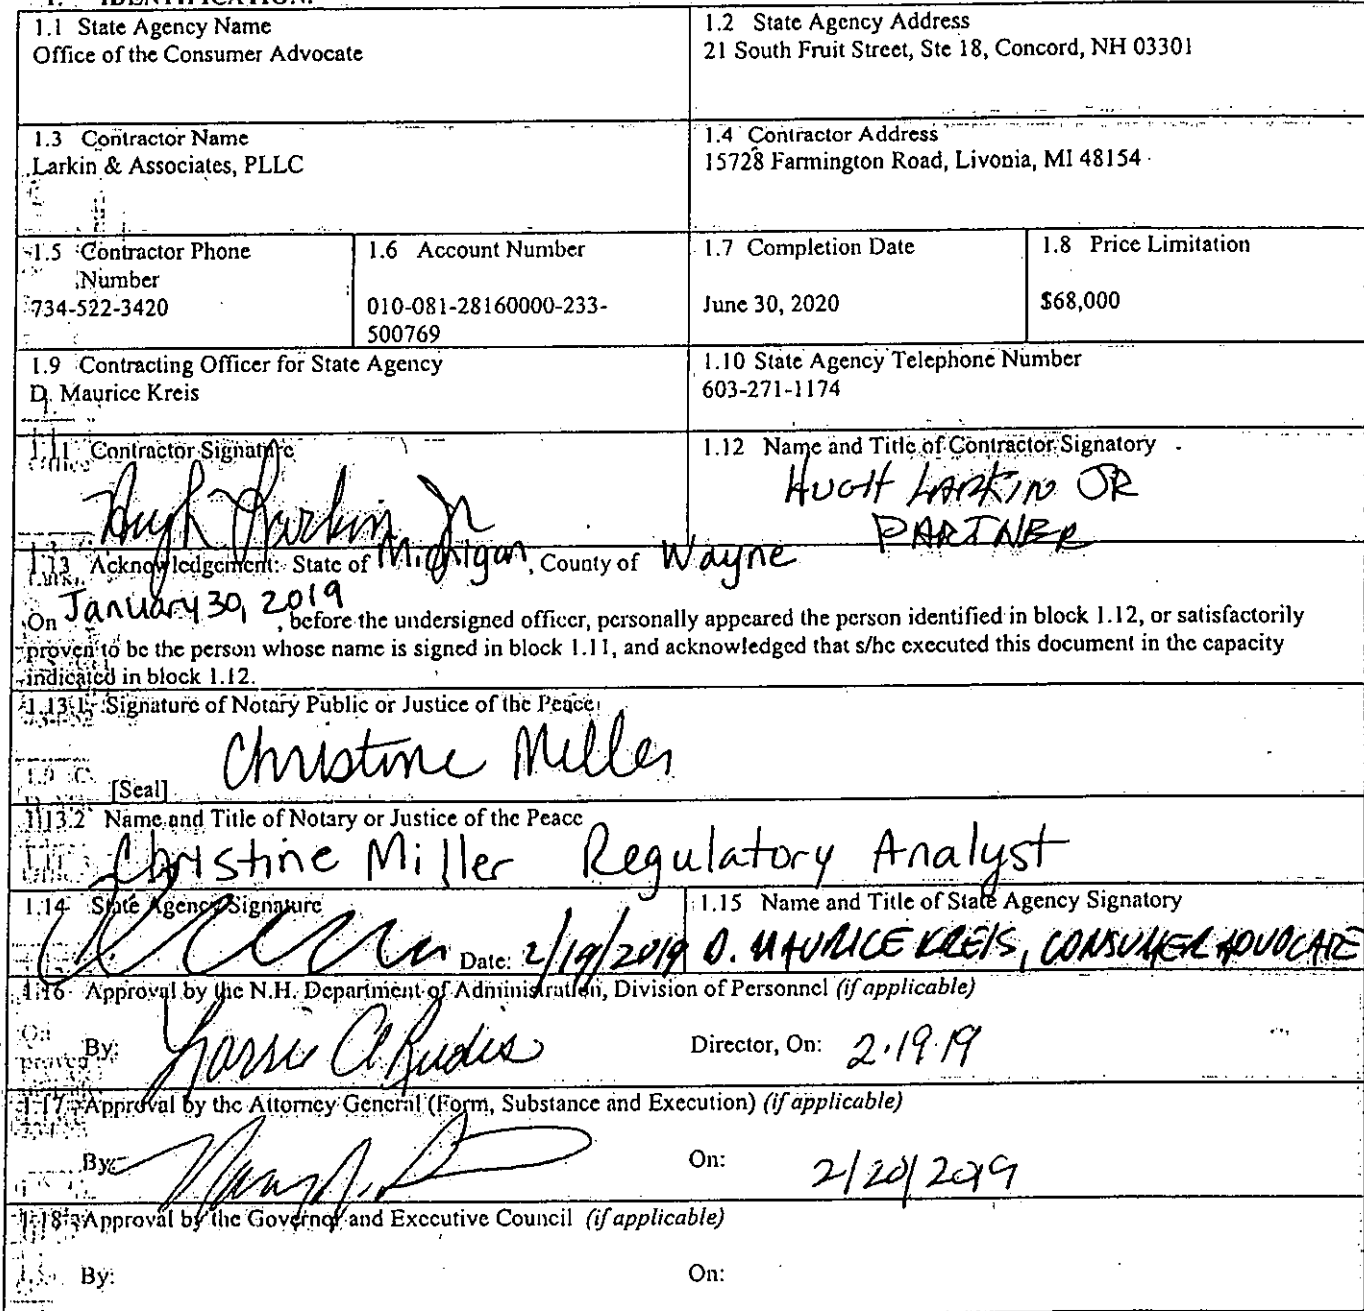 1. IDENTIFICATION.
1.1 State Agency Name
Office of the Consumer Advocate
1.2 State Agency Address
21 South Fruit Street, Ste 18, Concord, NH 03301
1.3 Contractor Name
Larkin & Associates, PLLC
1.4 Contractor Address
15728 Farmington Road, Livonia, MI 48154
1.5 Contractor Phone
Number
734-522-3420
1.6 Account Number
010-081-28160000-233-
500769
1.7 Completion Date
June 30, 2020
1.8 Price Limitation
$68,000
1.9 Contracting Officer for State Agency
D. Maurice Kreis
1.10 State Agency Telephone Number
603-271-1174
1.11 Contractor Signature
Hugh Larkin Jr
1.12 Name and Title of Contractor Signatory
HUGH LARKIN JR
PARTNER
1.13 Acknowledgement: State of Michigan, County of Wayne
On January 30, 2019, before the undersigned officer, personally appeared the person identified in block 1.12, or satisfactorily
proven to be the person whose name is signed in block 1.11, and acknowledged that s/he executed this document in the capacity
indicated in block 1.12.
1.13.1 Signature of Notary Public or Justice of the Peace
Christine Miller
[Seal]
1.13.2 Name and Title of Notary or Justice of the Peace
Christine Miller Regulatory Analyst
1.14 State Agency Signature
Date: 2/19/2019
1.15 Name and Title of State Agency Signatory
D. MAURICE KREIS, CONSUMER ADVOCATE
1.16 Approval by the N.H. Department of Administration, Division of Personnel (if applicable)
By: Director, On: 2.19.19
1.17 Approval by the Attorney General (Form, Substance and Execution) (if applicable)
By: On: 2/20/2019
1.18 Approval by the Governor and Executive Council (if applicable)
By: On: